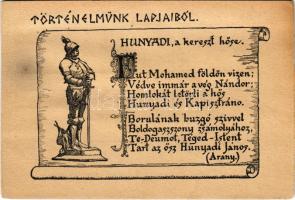 TÖRTÉNELMÜNK LAPJAIBÓL.
HUNYADI, a kereszt hőse.
Fut Mohamed földön vizen;
Védve immár a vég Nándor;
Homlokát letörli a hős
Hunyadi és Kapisztráno.
Borulának buzgó szívvel
Boldogasszony zsámolyához,
Te-Déumot, Téged-Istent
Tart az ősz Hunyadi János.
(Arany.)